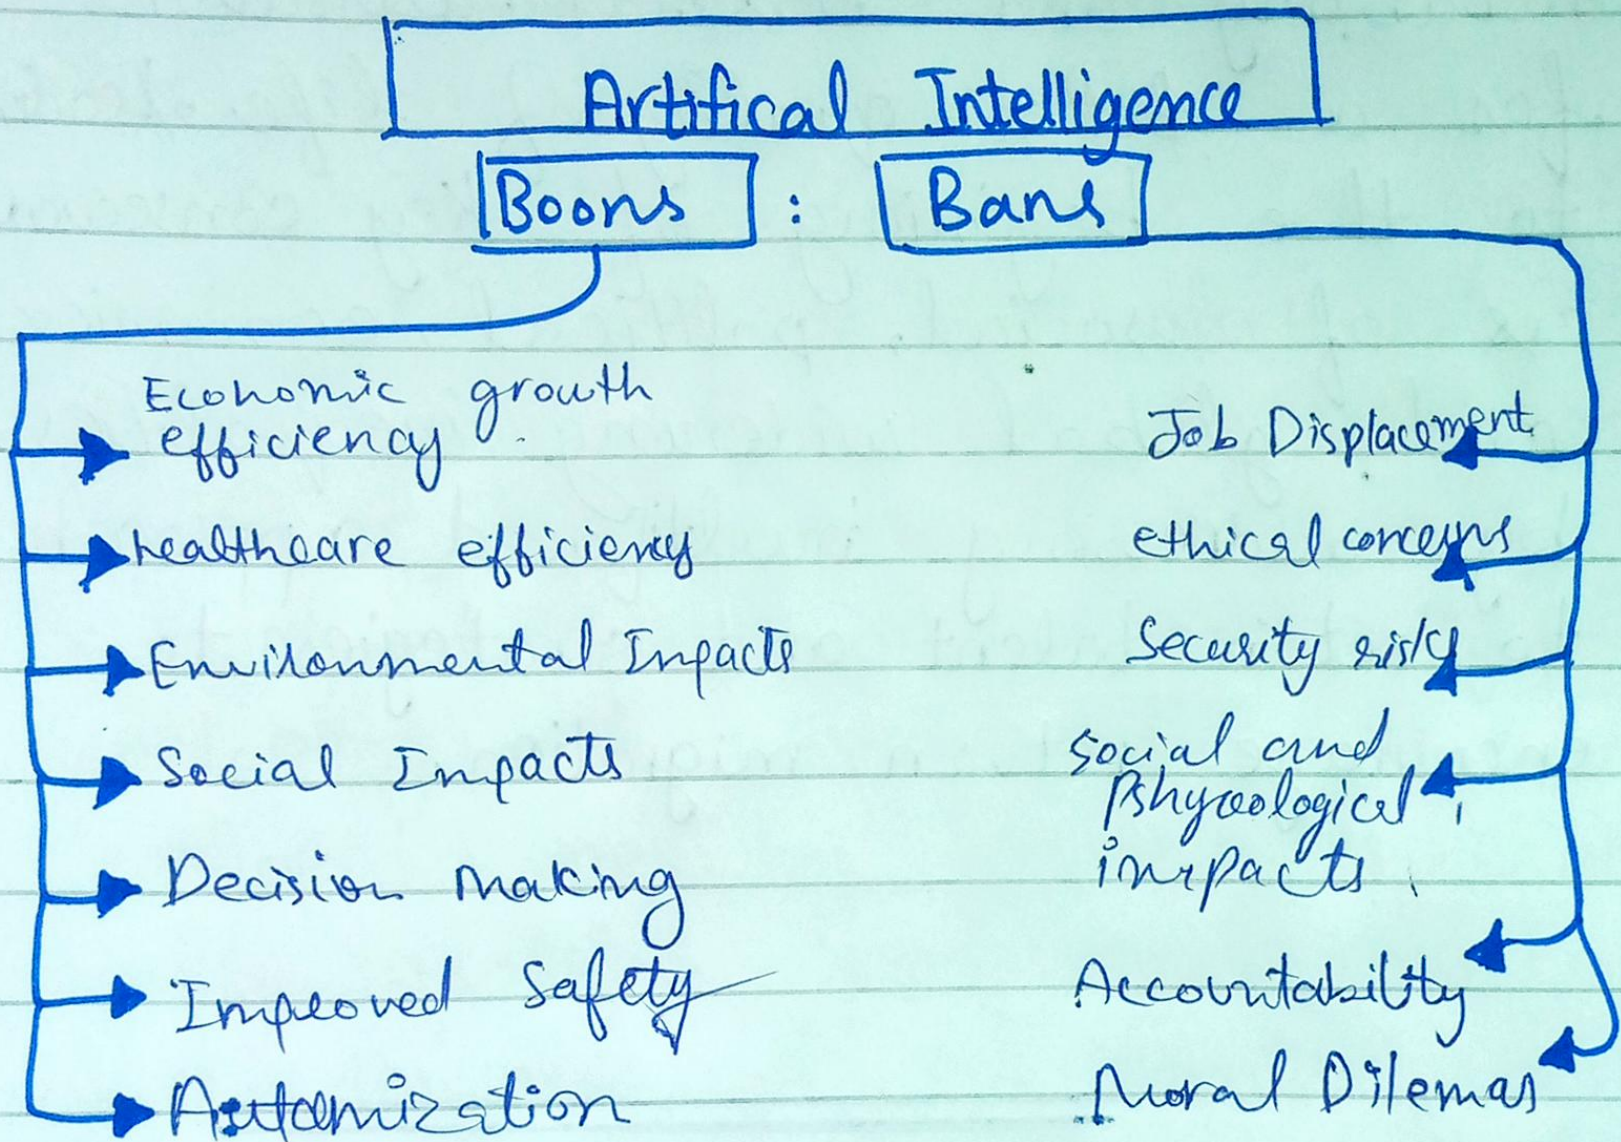 Artifical Intelligence
Boons : Bans
Economic growth
efficiency
healthcare efficiency
Environmental Impacts
Social Impacts
Decision making
Improved Safety
Automization
Job Displacement
ethical concerns
Security risks
social and
Pshycological
impacts
Accountability
Moral Dilemas